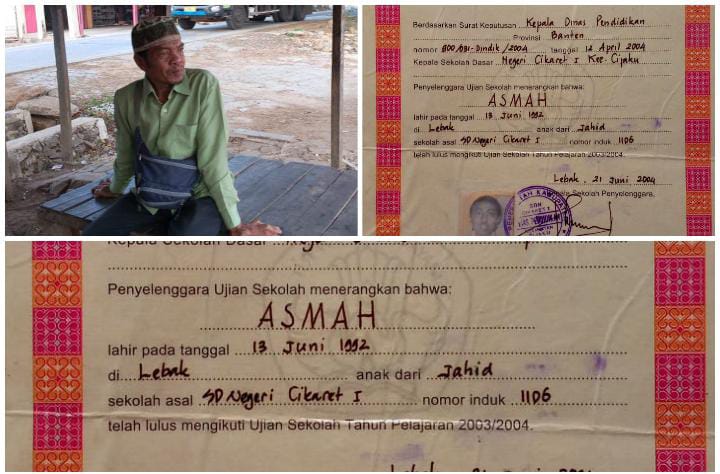 Berdasarkan Surat Keputusan Kepala Dinas Pendidikan
Provinsi Banten
nomor 800/031-Dindik/2004 tanggal 12 April 2004
Kepala Sekolah Dasar Negeri Cikaret I Kec. Cijaku
Penyelenggara Ujian Sekolah menerangkan bahwa:
ASMAH
lahir pada tanggal 13 Juni 1992
di Lebak anak dari Jahid
sekolah asal SD Negeri Cikaret I nomor induk 1106
telah lulus mengikuti Ujian Sekolah Tahun Pelajaran 2003/2004.
Lebak, 21 Juni 2004
Kepala Sekolah Penyelenggara,
Kepala Sekolah Dasar
Penyelenggara Ujian Sekolah menerangkan bahwa:
ASMAH
lahir pada tanggal 13 Juni 1992
di Lebak anak dari Jahid
sekolah asal SD Negeri Cikaret I nomor induk 1106
telah lulus mengikuti Ujian Sekolah Tahun Pelajaran 2003/2004.
Lebak, 21 Juni 2004